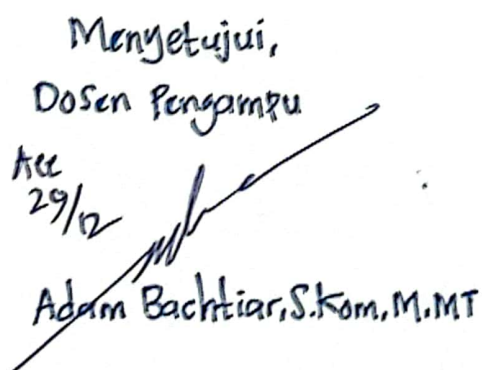 Menyetujui,
Dosen Pengampu
Acc
29/12
Adam Bachtiar, S.Kom, M.MT